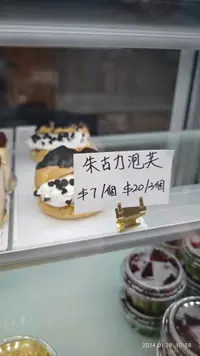 朱古力泡芙
$7/個 $20/3個
2024.01.28 10:38